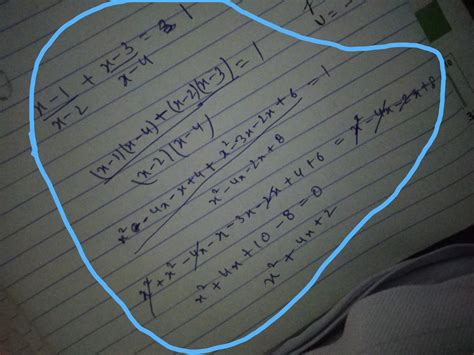 (x-1)/(x-2) + (x-3)/(x-4) = 1
((x-1)(x-4) + (x-2)(x-3))/((x-2)(x-4)) = 1
(x² - 4x - x + 4 + x² - 3x - 2x + 6)/(x² - 4x - 2x + 8) = 1
x² + x² - 4x - x - 3x - 2x + 4 + 6 = x² - 4x - 2x + 8
x² + 4x + 10 - 8 = 0
x² + 4x + 2